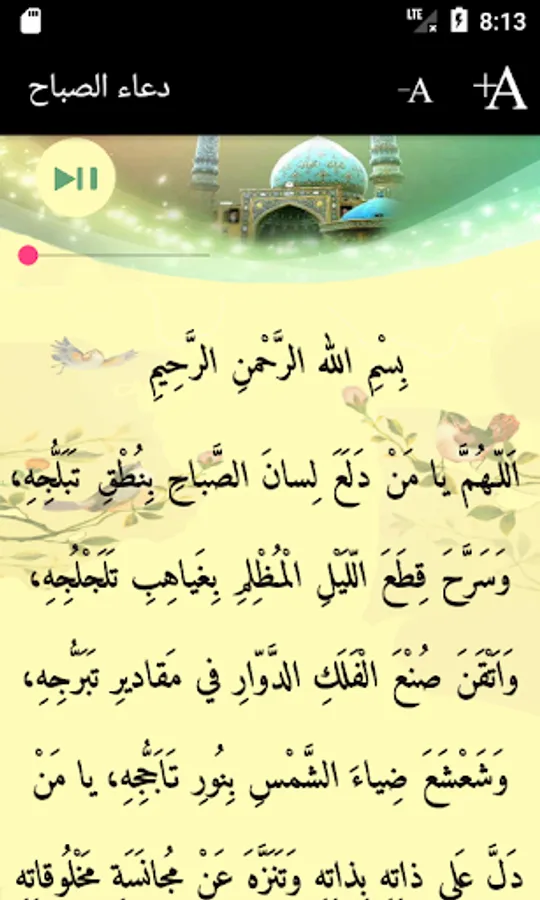 LTE 8:13
دعاء الصباح -A +A
بِسْمِ الله الرَّحْمنِ الرَّحِيمِ
اَللّـهُمَّ يا مَنْ دَلَعَ لِسانَ الصَّباحِ بِنُطْقِ تَبَلُّجِهِ،
وَسَرَّحَ قِطَعَ الَّليْلِ الْمُظْلِمِ بِغَياهِبِ تَلَجْلُجِهِ،
وَاَتْقَنَ صُنْعَ الْفَلَكِ الدَّوّارِ في مَقاديرِ تَبَرُّجِهِ،
وَشَعْشَعَ ضِياءَ الشَّمْسِ بِنُورِ تَاَجُّجِهِ، يا مَنْ
دَلَّ عَلى ذاتِهِ بِذاتِهِ وَتَنَزَّهَ عَنْ مُجانَسَةِ مَخْلُوقاتِهِ